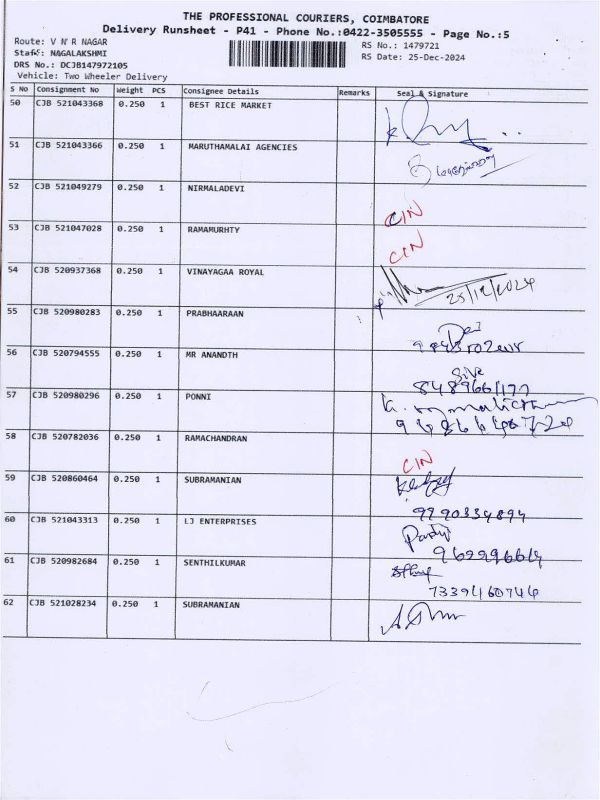 THE PROFESSIONAL COURIERS, COIMBATORE
Delivery Runsheet - P41 - Phone No.:0422-3505555 - Page No.:5
Route: V N R NAGAR
Staff: NAGALAKSHMI
DRS No.: DCJB147972105
Vehicle: Two Wheeler Delivery
RS No.: 1479721
RS Date: 25-Dec-2024
S No Consignment No Weight PCS Consignee Details Remarks Seal & Signature
50 CJB 521043368 0.250 1 BEST RICE MARKET
51 CJB 521043366 0.250 1 MARUTHAMALAI AGENCIES
52 CJB 521049279 0.250 1 NIRMALADEVI CIN
53 CJB 521047028 0.250 1 RAMAMURHTY CIN
54 CJB 520937368 0.250 1 VINAYAGAA ROYAL 25/12/2024
55 CJB 520980283 0.250 1 PRABHAARAAN
56 CJB 520794555 0.250 1 MR ANANDTH
57 CJB 520980296 0.250 1 PONNI
58 CJB 520782036 0.250 1 RAMACHANDRAN CIN
59 CJB 520860464 0.250 1 SUBRAMANIAN
9790334894
60 CJB 521043313 0.250 1 LJ ENTERPRISES
61 CJB 520982684 0.250 1 SENTHILKUMAR
7339460744
62 CJB 521028234 0.250 1 SUBRAMANIAN